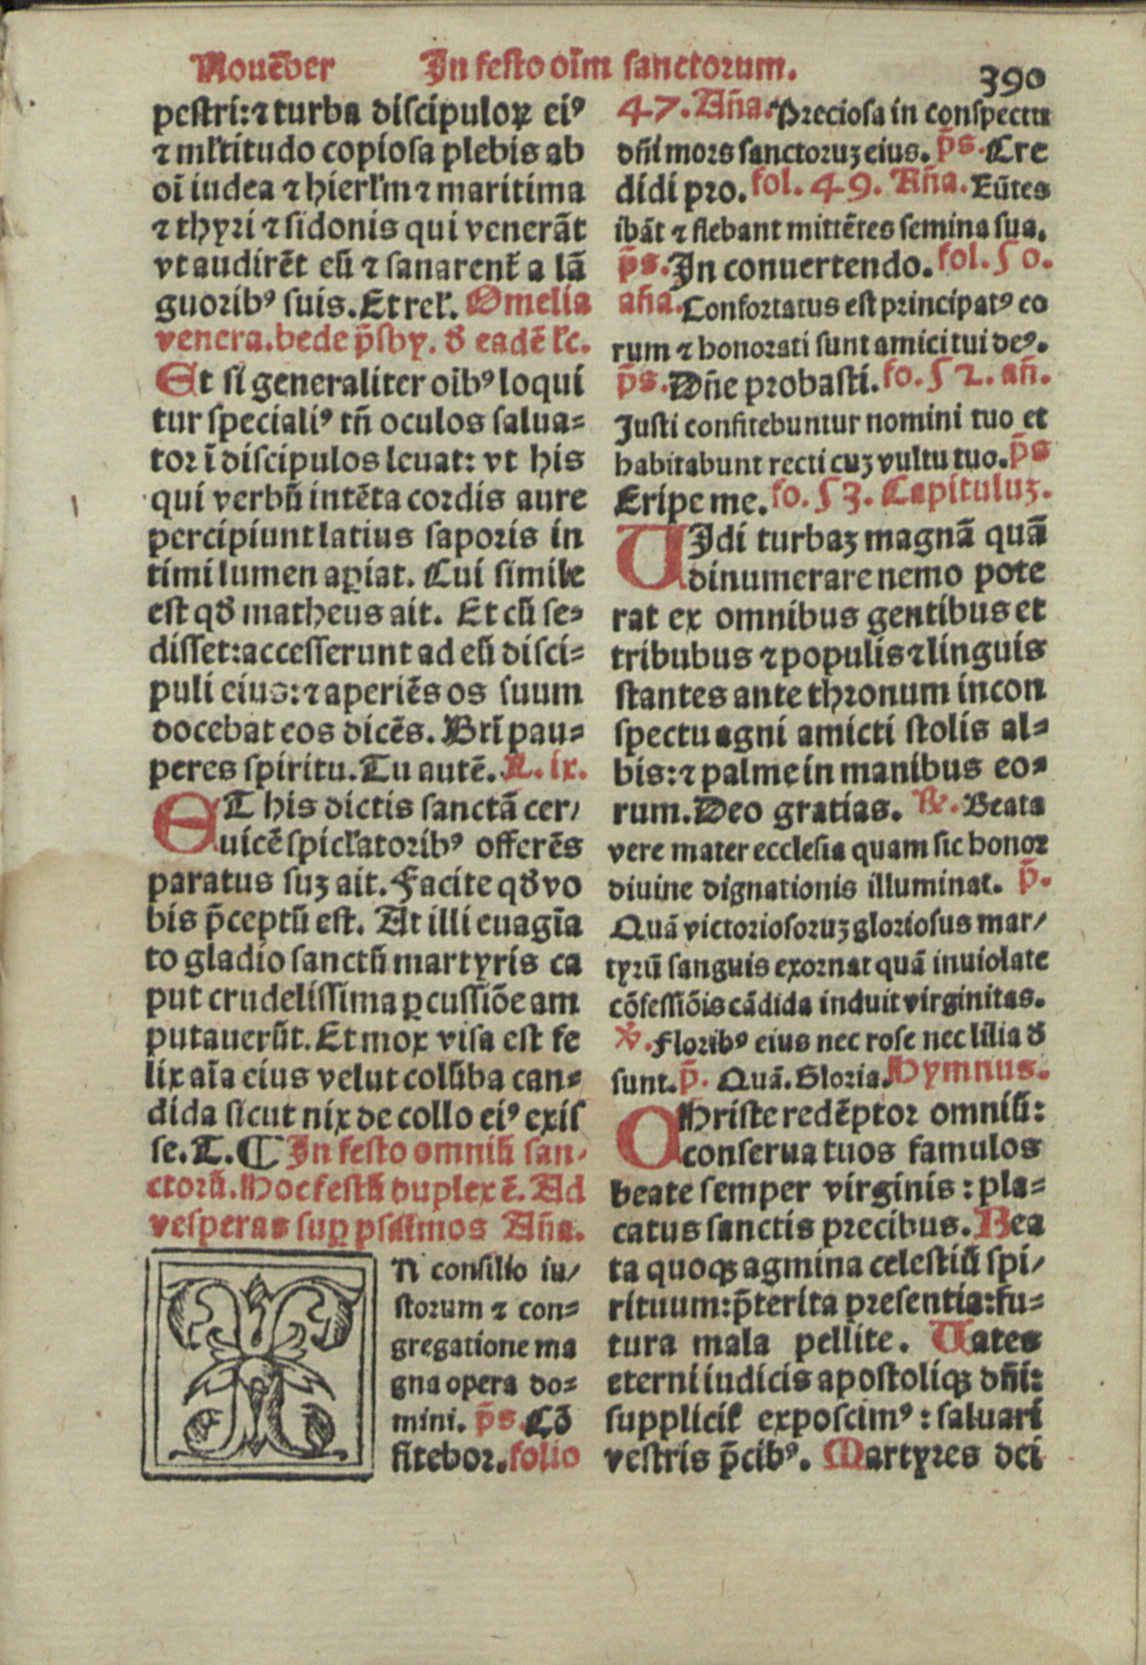 Nouēber In festo oīm sanctorum. 390
pestri: ⁊ turba discipuloꝝ eiꝰ
⁊ ml̄titudo copiosa plebis ab
oī iudea ⁊ hierl̄m ⁊ maritima
⁊ thyri ⁊ sidonis qui venerāt
vt audirēt eū ⁊ sanarent̄ a lā
guoribꝰ suis. Et rel̄. Omelia
venera. bede p̄sby. d̄ eadē lc̄.
Et si generaliter oībꝰ loqui
tur specialiꝰ tn̄ oculos salua⸗
tor ī discipulos leuat: vt his
qui verbū intēta cordis aure
percipiunt latius saporis in
timi lumen aꝑiat. Cui simile
est qd̄ matheus ait. Et cū se⸗
disset: accesserunt ad eū disci⸗
puli eius: ⁊ aperiēs os suum
docebat eos dicēs. Brī pau⸗
peres spiritu. Tu autē. L. ix.
ET his dictis sanctā cer/
uicē spicl̄atoribꝰ offerēs
paratus suꝫ ait. Facite qd̄ vo
bis p̄ceptū est. At illi euagīa
to gladio sanctū martyris ca
put crudelissima ꝑcussiōe am
putauerūt. Et mox visa est fe
lix aīa eius velut colūba can⸗
dida sicut nix de collo eiꝰ exis
se. T. ¶ In festo omniū san⸗
ctorū. Hoc festū duplex ē. Ad
vesperas suꝑ psalmos Añā.
IN consilio iu/
storum ⁊ con⸗
gregatione ma
gna opera do⸗
mini. p̄s. Cō
fitebor. folio
47. Añā. Preciosa in conspectu
dn̄i mors sanctoruꝫ eius. p̄s. Cre
didi pro. fol. 49. Añā. Eūtes
ibāt ⁊ flebant mittētes semina sua.
p̄s. In conuertendo. fol. 50.
añā. Confortatus est principatꝰ eo
rum ⁊ honorati sunt amici tui deꝰ.
p̄s. Dn̄e probasti. fo. 52. añ.
Justi confitebuntur nomini tuo et
habitabunt recti cuꝫ vultu tuo. p̄s
Eripe me. fo. 53. Capituluꝫ.
VIdi turbaꝫ magnā quā
dinumerare nemo pote
rat ex omnibus gentibus et
tribubus ⁊ populis ⁊ linguis
stantes ante thronum in con
spectu agni amicti stolis al⸗
bis: ⁊ palme in manibus eo⸗
rum. Deo gratias. ℟. Beata
vere mater ecclesia quam sic honor
diuine dignationis illuminat. p̄.
Quā victoriosoruꝫ gloriosus mar/
tyrū sanguis exornat quā inuiolate
cōfessiōis cādida induit virginitas.
℣. Floribꝰ eius nec rose nec lilia d̄
sunt. p̄. Quā. Gloria. Hymnus.
CHriste redēptor omniū:
conserua tuos famulos
beate semper virginis: pla⸗
catus sanctis precibus. Bea
ta quoqꝫ agmina celestiū spi/
rituum: p̄terita presentia: fu⸗
tura mala pellite. Uates
eterni iudicis apostoliqꝫ dn̄i:
supplicil̄ exposcimꝰ: saluari
vestris p̄cibꝰ. Martyres dei